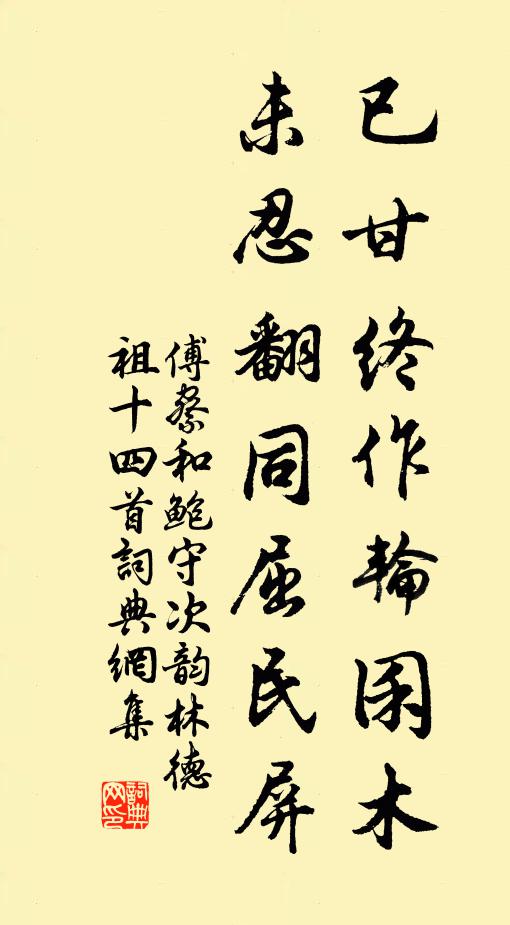 已甘終作輪囷木
未忍翻同屈民屏
傅察和鮑守次韵林德
祖十四首詞典網集
詞典
网印